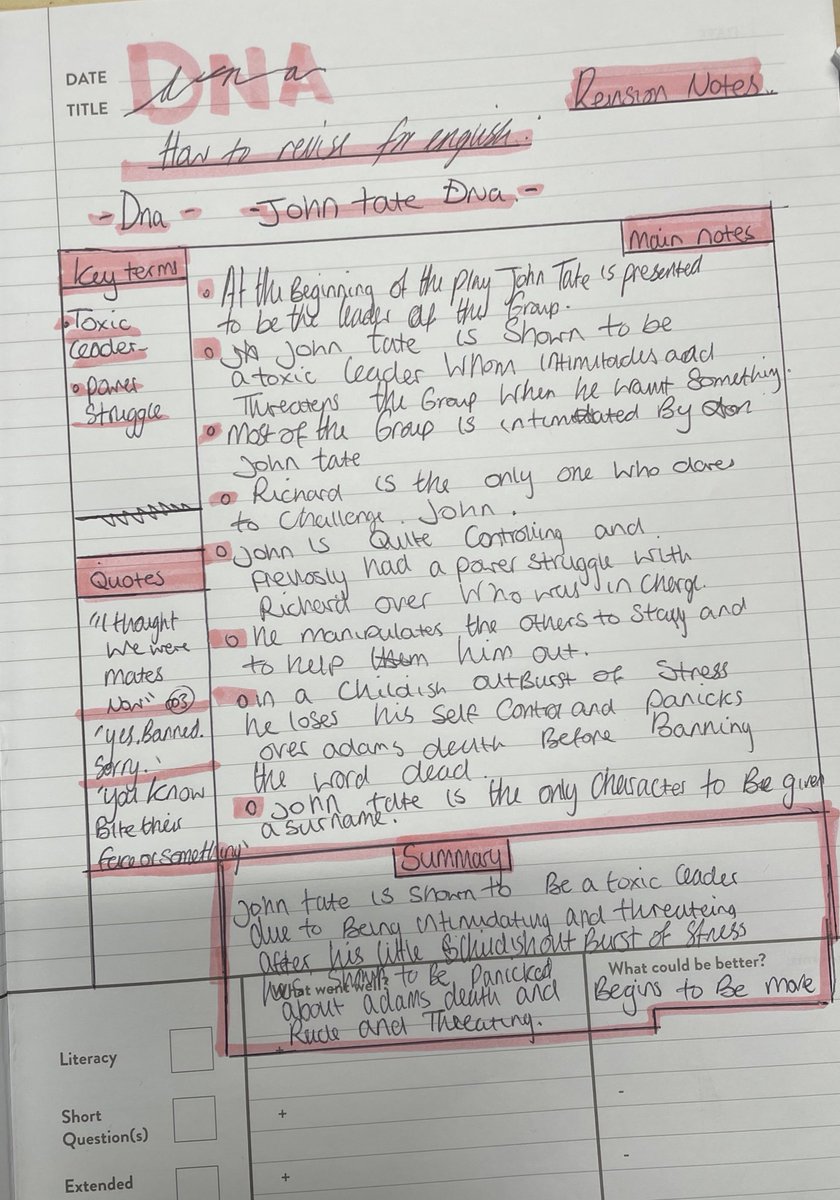 DATE
DNA
dna
TITLE
Revision Notes
How to revise for english.
- Dna - - John tate Dna. -
Key terms
Toxic
leader
power
Struggle
Main notes
At the Beginning of the Play John Tate is presented
to be the leader of the Group.
John tate is shown to be
a toxic leader whom intimitades and
Threatens the Group when he want Something.
Most of the Group is intimidated By
John tate
Richard is the only one who dares
to challenge John.
John is Quite Controlling and
previosly had a power struggle with
Richard over who was in charge.
he manipulates the others to Stay and
to help him out.
in a childish outBurst of Stress
he loses his self Control and panicks
over adams death Before Banning
the word dead.
John tate is the only character to Be given
a surname.
Quotes
"I thought
we were
mates
Now"
"yes. Banned.
Sorry."
"you know
Bite their
face or something"
Summary
John tate is shown to Be a toxic leader
due to Being intimidating and threateing
after his little childish out Burst of Stress
shown to Be panicked
about adams death and
Rude and Threating.
Begins to Be more
What went well?
What could be better?
Literacy
+
-
Short
Question(s)
+
-
Extended
+